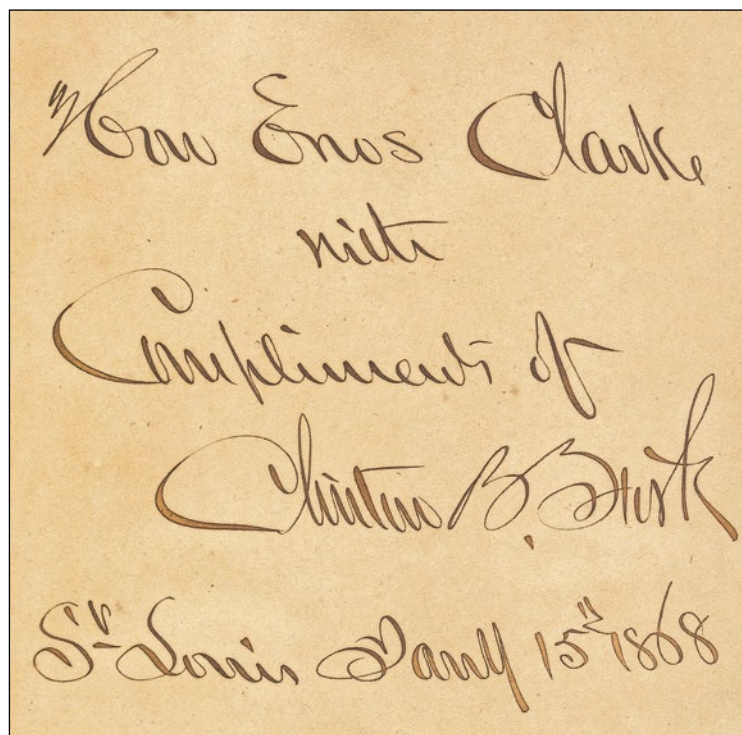 Hon Enos Clark
with
Compliments of
Clinton B. Fisk
St Louis Jany 15th 1868